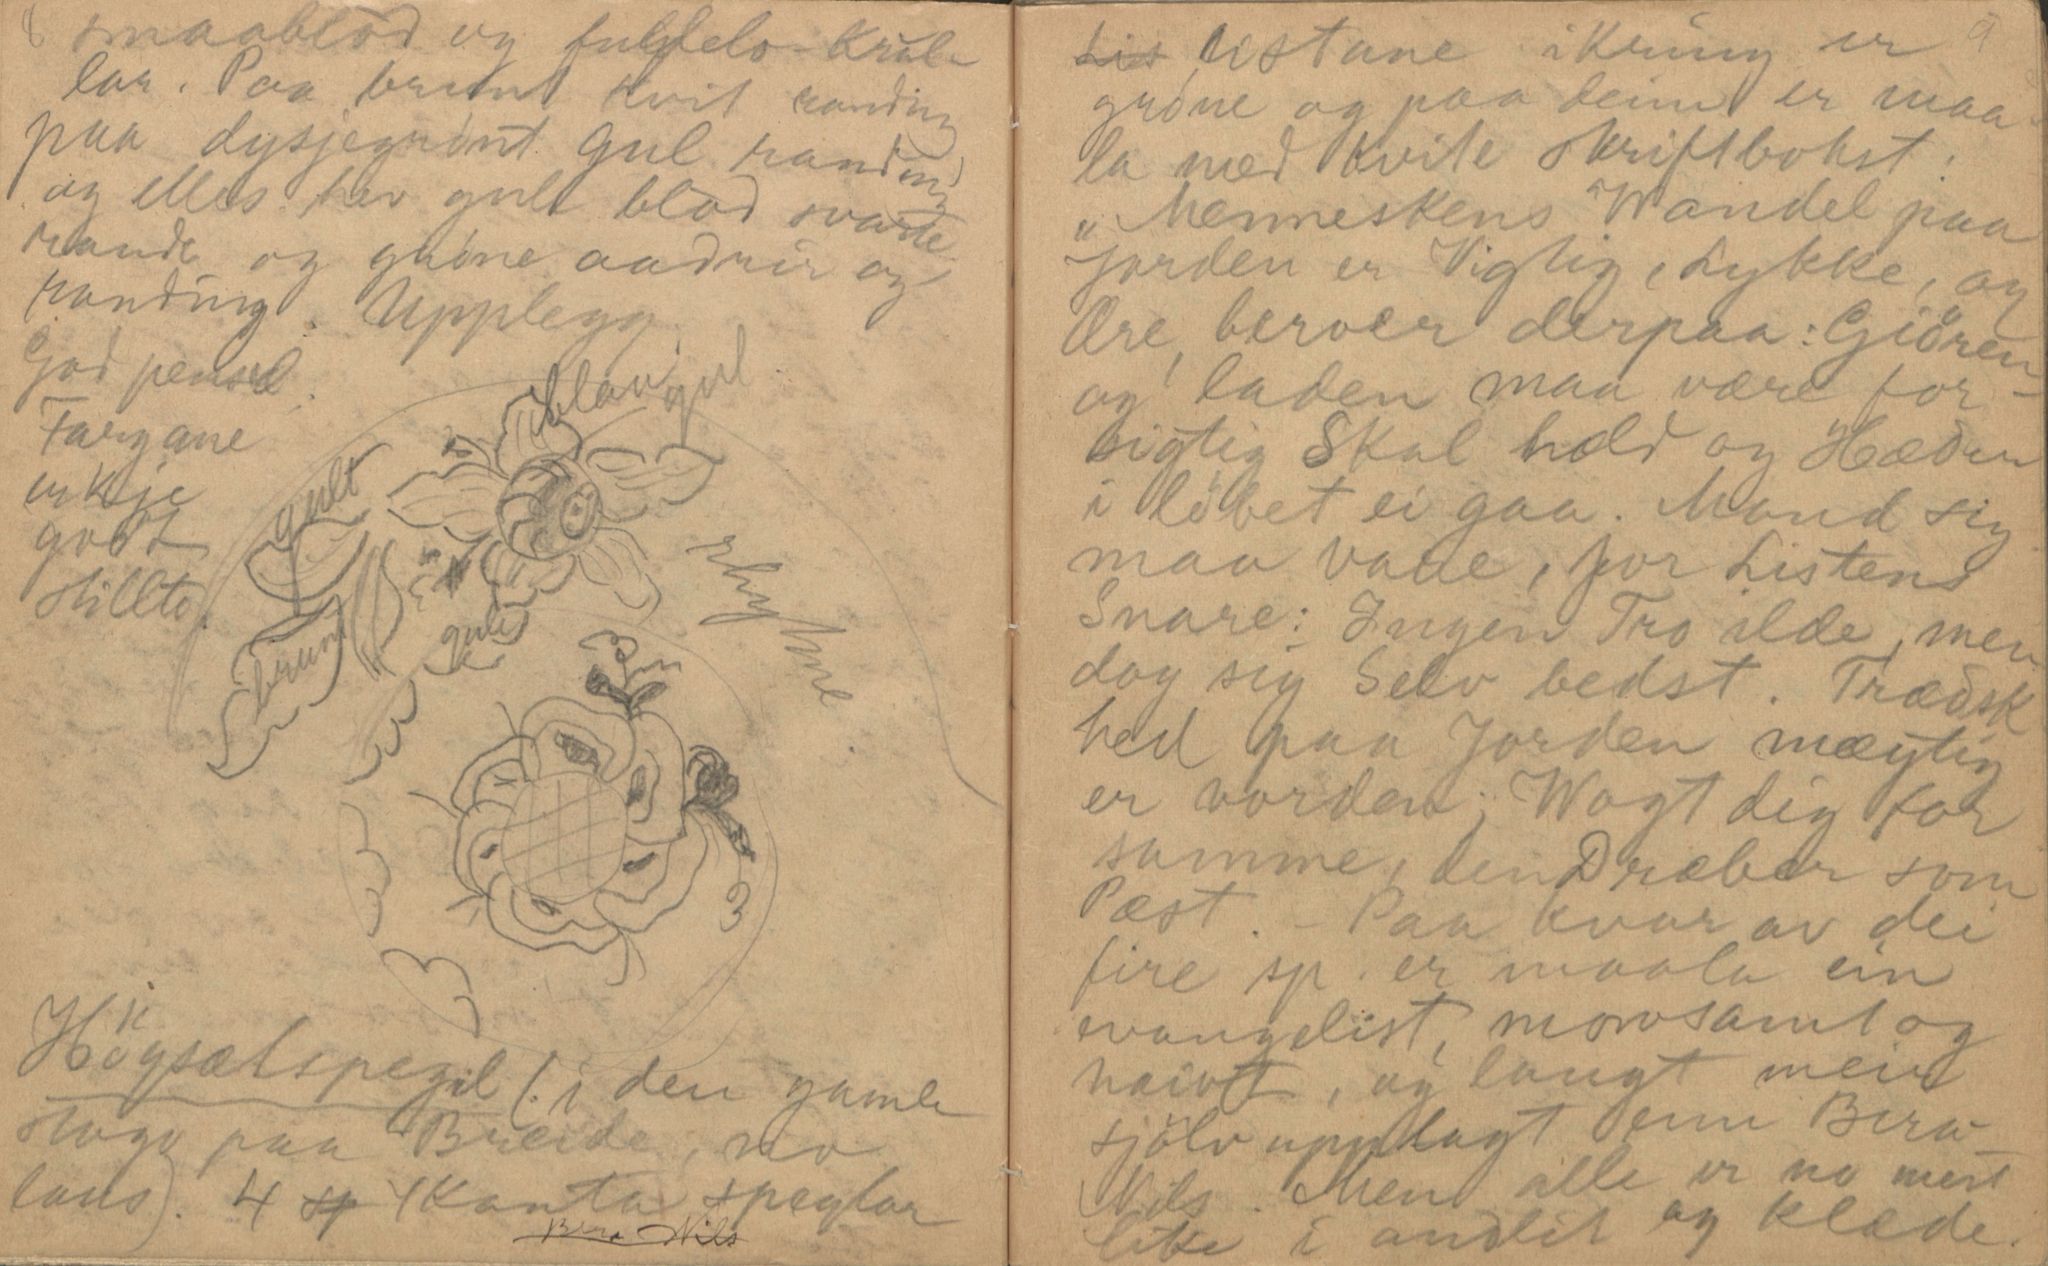 8 smaablod og fuldelo-krul-
lar. Paa brunt kvit randing
paa dysjegrönt. Gul randing
og elles hev gult blod svarte
rande og gröne aadrir og
randing. Upplegg.
God pensel.
Fargane
erkje
godt
stillto.
blau gul
gult
brunt
gult
rhythme
Högsætspegil (i den gamle
stogo paa Breide, no
laus). 4 4kanta speglar
Bera Nils
9
Listane ikring er
gröne og paa deim er maa-
la med kvite skriftbokst.
"Menneskens Wandel paa
Jorden er Vigtig, Lykke, og
Ære, beroer derpaa: Giören
og laden maa være for-
sigtig Skal held og Hæder
i löbet ei gaa. Mand sig
maa vare, for Listens
Snare: Ingen Tro ilde, men
dog sig Selv bedst. Trædsk
hed paa Jorden mægtig
er vorden; Wogt dig for
samme, den Dræber som
Pæst. - Paa kvar av dei
fire sp. er maala ein
evangelist, morosamt og
naivt, og langt meir
sjölvupplagt enn Bera
Nils. Men alle er no mest
like i andlit og klæde.